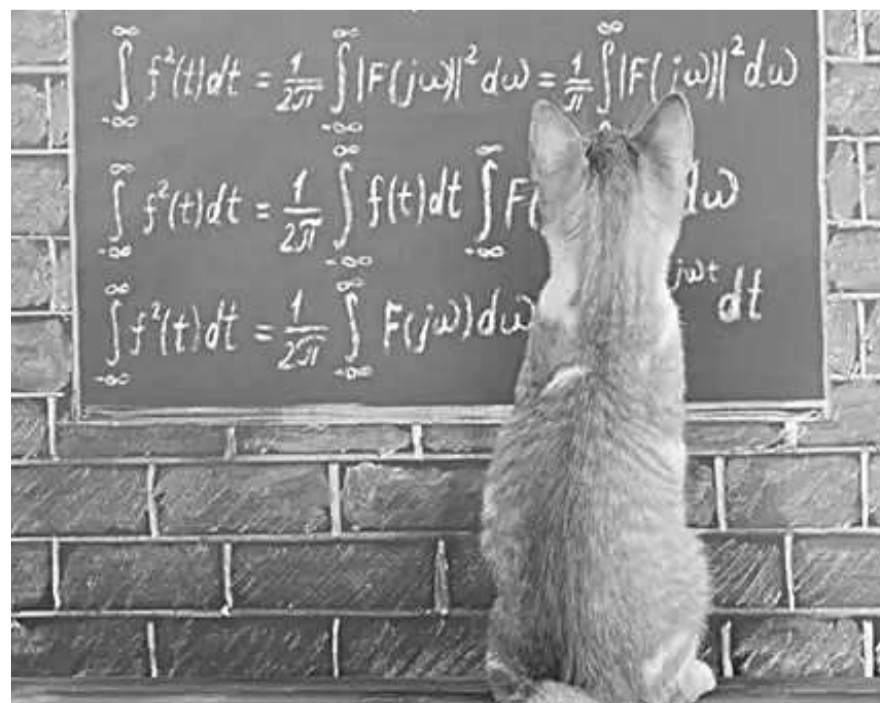 ∫_{-∞}^{∞} f²(t)dt = 1/2π ∫_{-∞}^{∞} |F(jω)|² dω = 1/π ∫^{∞} |F(jω)|² dω
∫_{-∞}^{∞} f²(t)dt = 1/2π ∫_{-∞}^{∞} f(t)dt ∫_{-∞}^{∞} F( dω
∫_{-∞}^{∞} f²(t)dt = 1/2π ∫_{-∞}^{∞} F(jω)dω jωt dt